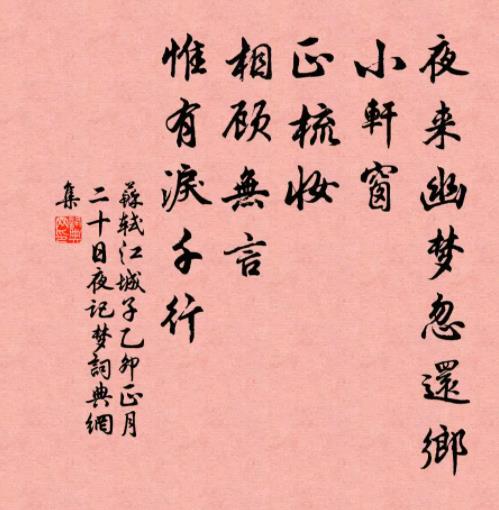 夜来幽梦忽還鄉
小軒窗
正梳妆
相顾無言
惟有淚千行
蘇軾江城子乙卯正月
二十日夜记梦詞典網
集